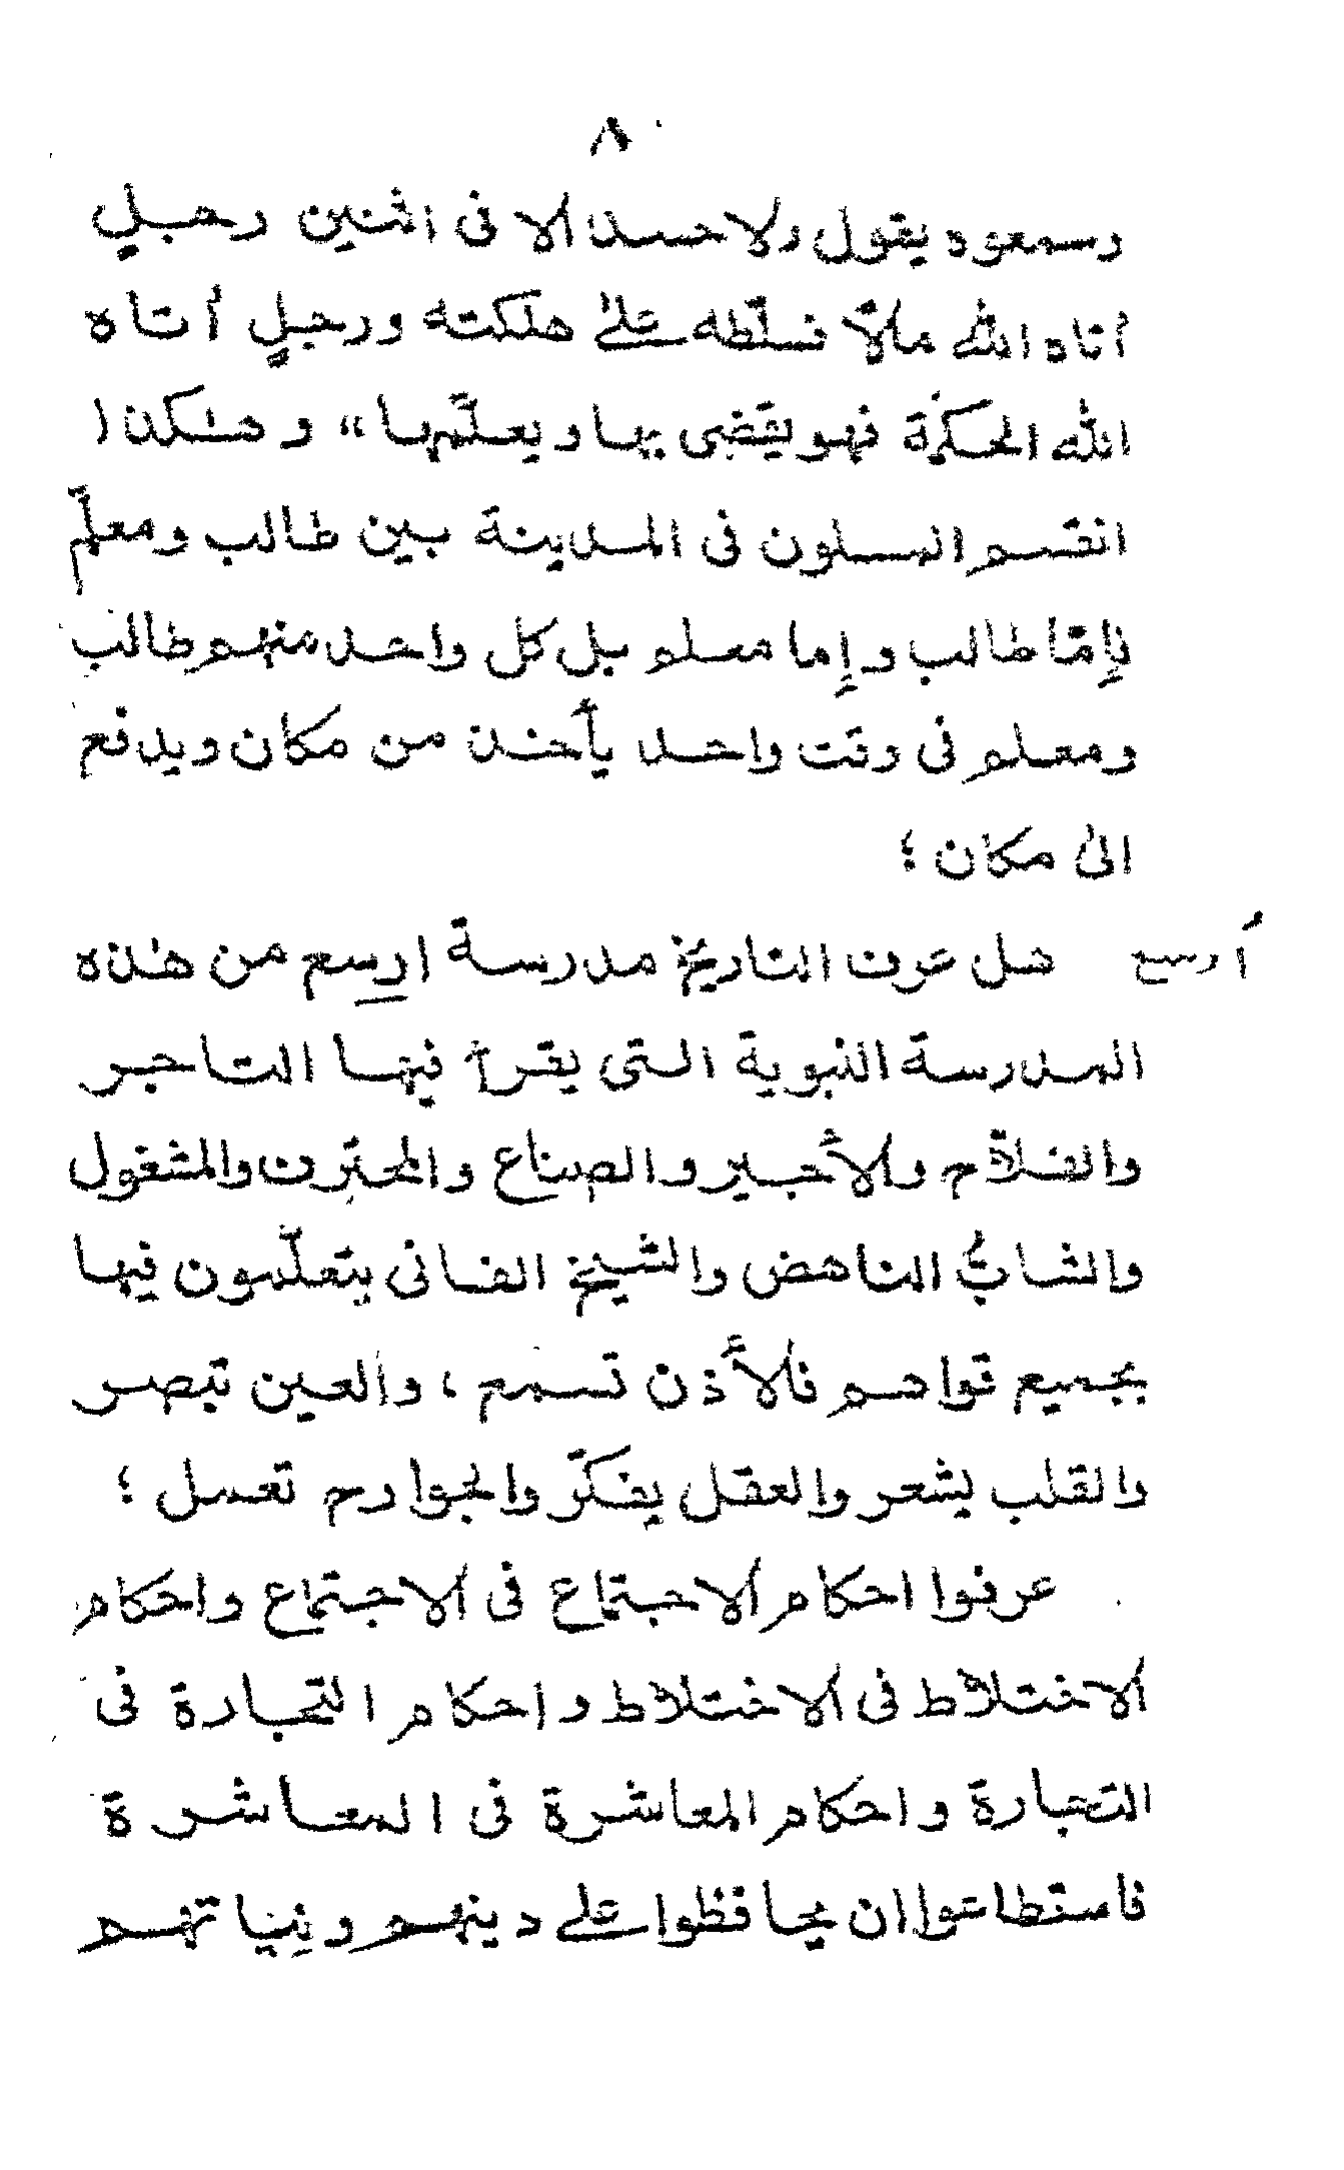 ٨
وسمعوه يقول «لا حسد الا فى اثنين رجلٍ
أتاه الله مالاً فسلّطه على هلكته ورجلٍ أتاه
الله الحكمة فهو يقضى بها ويعلّمها» وهكذا
انقسم المسلمون فى المدينة بين طالب ومعلّم
فإمّا طالب وإما معلم بل كل واحد منهم طالب
ومعلم فى وقت واحد يأخذ من مكان ويدفع
الى مكان ؛
هل عرف التاريخ مدرسة اوسع من هذه
أوسع
المدرسة النبوية التى يقرأ فيها التاجر
والفلاّح والأجير والصناع والمحترف والمشغول
والشابُّ الناهض والشيخ الفانى يتعلّمون فيها
بجميع قواهم فالأذن تسمع ، والعين تبصر
والقلب يشعر والعقل يفكّر والجوارح تعمل ؛
عرفوا احكام الاجتماع فى الاجتماع واحكام
الاختلاط فى الاختلاط واحكام التجارة فى
التجارة واحكام المعاشرة فى المعاشرة
فاستطاعوا ان يحافظوا على دينهم ونياتهم